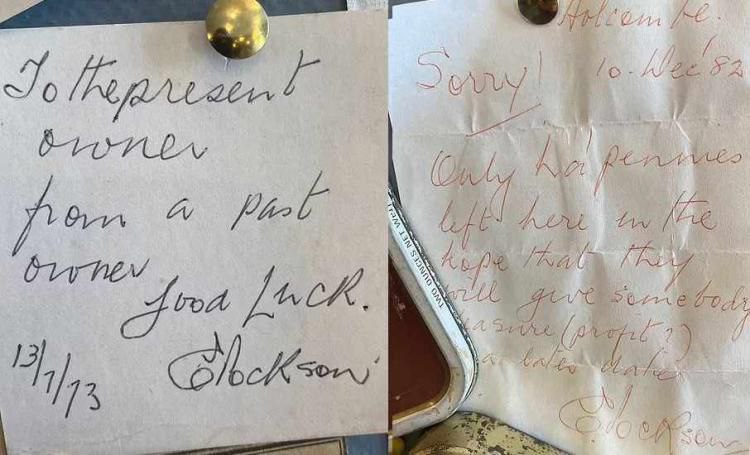 To the present
owner
from a past
owner
Good Luck.
13/1/73
Holcombe.
Sorry! 10 Dec '82
Only ha'pennies
left here in the
hope that they
will give somebody
(profit?)
a later date
TWO OUNCES NET